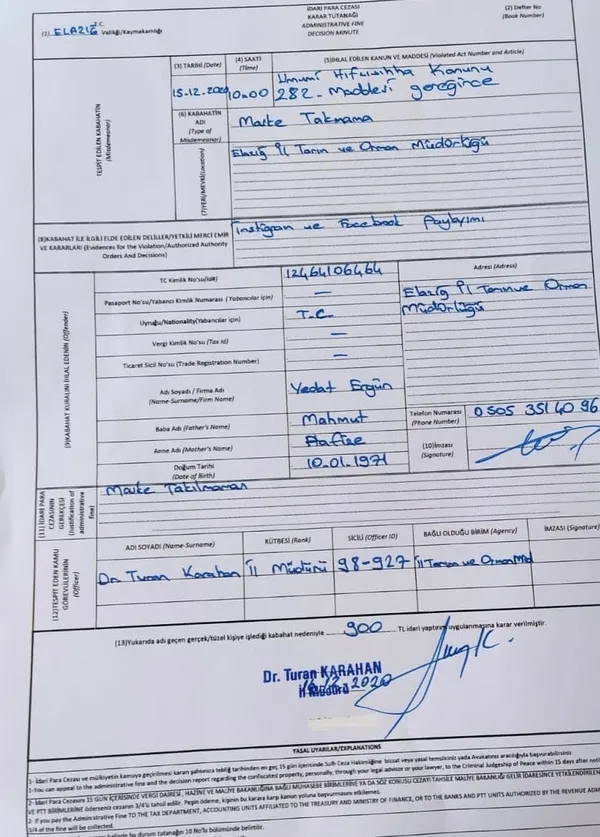 İDARİ PARA CEZASI
KARAR TUTANAĞI
ADMINISTRATIVE FINE
DECISION MINUTE
(2) Defter No
(Book Number)
T.C.
(1) ELAZIĞ Valiliği/Kaymakamlığı
TESPİT EDİLEN KABAHATİN
(Misdemeanor)
(3) TARİHİ (Date)
(4) SAATİ
(Time)
(5)İHLAL EDİLEN KANUN VE MADDESİ (Violated Act Number and Article)
15.12.2020
10:00
Umumi Hıfzıssıhha Kanunu
282. Maddesi gereğince
(6) KABAHATİN
ADI
(Type of
Misdemeanor)
Maske Takmama
(7)YERİ/MEVKİ(Location)
Elazığ İl Tarım ve Orman Müdürlüğü
(8)KABAHAT İLE İLGİLİ ELDE EDİLEN DELİLLER/YETKİLİ MERCİ EMİR
VE KARARLARI (Evidences for the Violation/Authorized Authority
Orders And Decisions)
İnstigran ve Facebook Paylaşımı
(9)KABAHAT KURALINI İHLAL EDENİN (Offender)
TC Kimlik No'su(Id#)
12464106464
Adresi (Address)
Pasaport No'su/Yabancı Kimlik Numarası (Yabancılar için)
—
Elazığ İl Tarım ve Orman
Müdürlüğü
Uyruğu/Nationality(Yabancılar için)
T.C
Vergi Kimlik No'su (Tax Id)
—
Ticaret Sicil No'su (Trade Registration Number)
—
Adı Soyadı / Firma Adı
(Name-Surname/Firm Name)
Vedat Ergün
Baba Adı (Father's Name)
Mahmut
Telefon Numarası
(Phone Number)
0 505 351 40 96
Anne Adı (Mother's Name)
Hafize
(10)İmzası
(Signature)
Doğum Tarihi
(Date of Birth)
10.01.1971
(11) İDARİ PARA
CEZASININ
GEREKÇESİ
(Justification of
administrative
fine)
Maske Takılmaması
(12)TESPİT EDEN KAMU
GÖREVLİLERİNİN
(Officer)
ADI SOYADI (Name-Surname)
RÜTBESİ (Rank)
SİCİLİ (Officer ID)
BAĞLI OLDUĞU BİRİM (Agency)
İMZASI (Signature)
Dr. Turan Karahan
İl Müdürü
98-927
İl Tarım ve Orman Müd
(13)Yukarıda adı geçen gerçek/tüzel kişiye işlediği kabahat nedeniyle 900 TL idari yaptırım uygulanmasına karar verilmiştir.
Dr. Turan KARAHAN
İl Müdürü
16.12.2020
YASAL UYARILAR/EXPLANATIONS
1- İdari Para Cezası ve mülkiyetin kamuya geçirilmesi kararı şahsınıza tebliğ tarihinden en geç 15 gün içerisinde Sulh Ceza Hakimliğine bizzat veya yasal temsilciniz yada Avukatınız aracılığıyla başvurabilirsiniz
1-You can appeal to the administrative fine and the decision report regarding the confiscated property, personally, through your legal advisor or your lawyer, to the Criminal Judgeship of Peace within 15 days after
2- İdari Para Cezasını 15 GÜN İÇERİSİNDE VERGİ DAİRESİ, HAZİNE VE MALİYE BAKANLIĞINA BAĞLI MUHASEBE BİRİMLERİNE YA DA SÖZ KONUSU CEZAYI TAHSİLE MALİYE BAKANLIĞI GELİR İDARESİNCE YETKİLENDİRİLEN
VE PTT BİRİMLERİNE öderseniz cezanın 3/4'ü tahsil edilir. Peşin ödeme, kişinin bu karara karşı kanun yoluna başvurmasını etkilemez.
2- If you pay the Administrative Fine to THE TAX DEPARTMENT, ACCOUNTING UNITS AFFILIATED TO THE TREASURY AND MINISTRY OF FINANCE, OR TO THE BANKS AND PTT UNITS AUTHORIZED BY THE REVENUE
3/4 of the fine will be collected.
halinde bu durum tutanağın 10 No'lu bölümünde belirtilir.